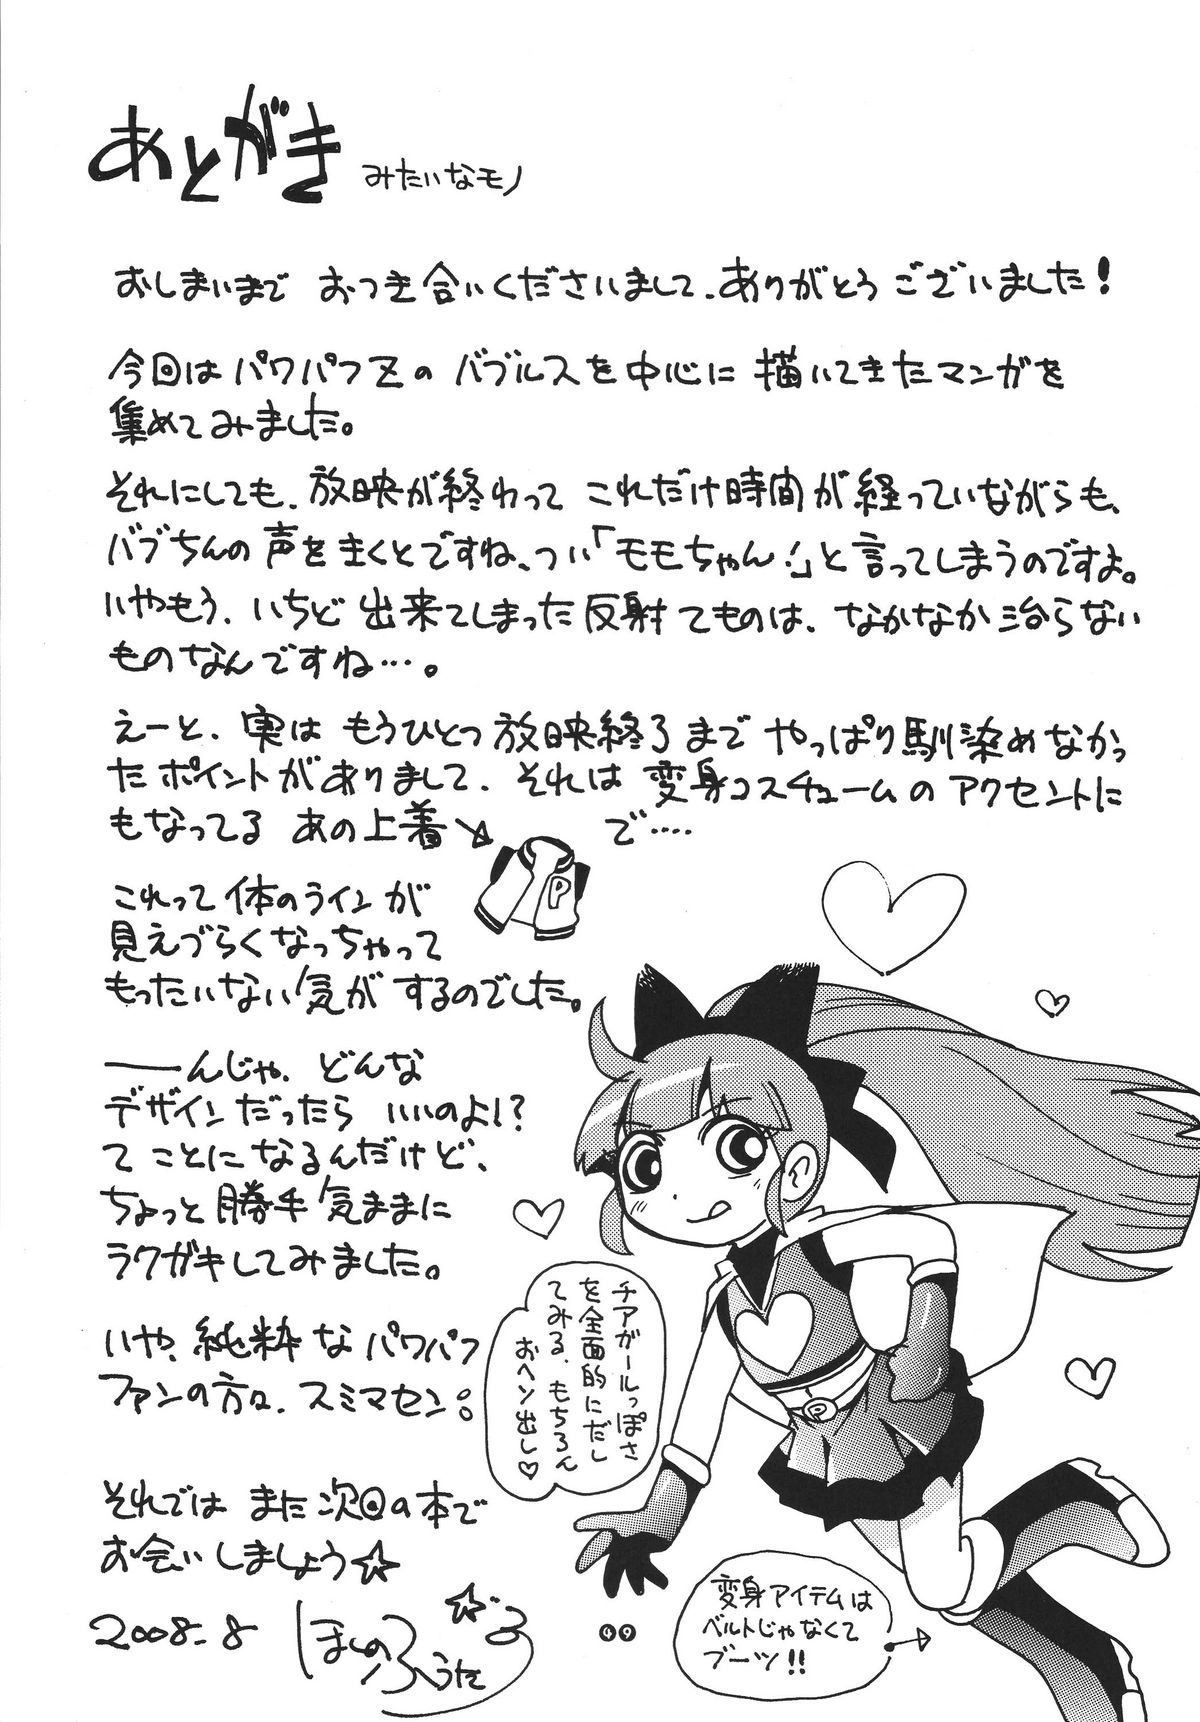 あとがき みたいなモノ
おしまいまで おつき合いくださいまして、ありがとうございました!
今回は パワパフZの バブルスを中心に 描いてきたマンガを
集めてみました。
それにしても、放映が終わって これだけ時間が経っていながらも、
バブちんの声をきくとですね、つい「モモちゃん!」と言ってしまうのですよ。
いやもう、いちど出来てしまった反射てものは、なかなか治らない
ものなんですね…。
えーと、実は もうひとつ放映終了まで やっぱり馴染めなかっ
たポイントがありまして、それは 変身コスチュームのアクセントに
もなってる あの上着 で‥‥
P
これって体のラインが
見えづらくなっちゃって
もったいない気がするのでした。
――んじゃ、どんな
デザインだったら いいのよ!?
て ことになるんだけど、
ちょっと勝手気ままに
ラクガキしてみました。
いや、純粋なパワパフ
ファンの方々、スミマセン。
それでは また次回の本で
お会いしましょう☆
2008.8
チアガールっぽさ
を全面的にだし
てみる、もちろん
おヘソ出し♡
P
変身アイテムは
ベルトじゃなくて
ブーツ!!
49